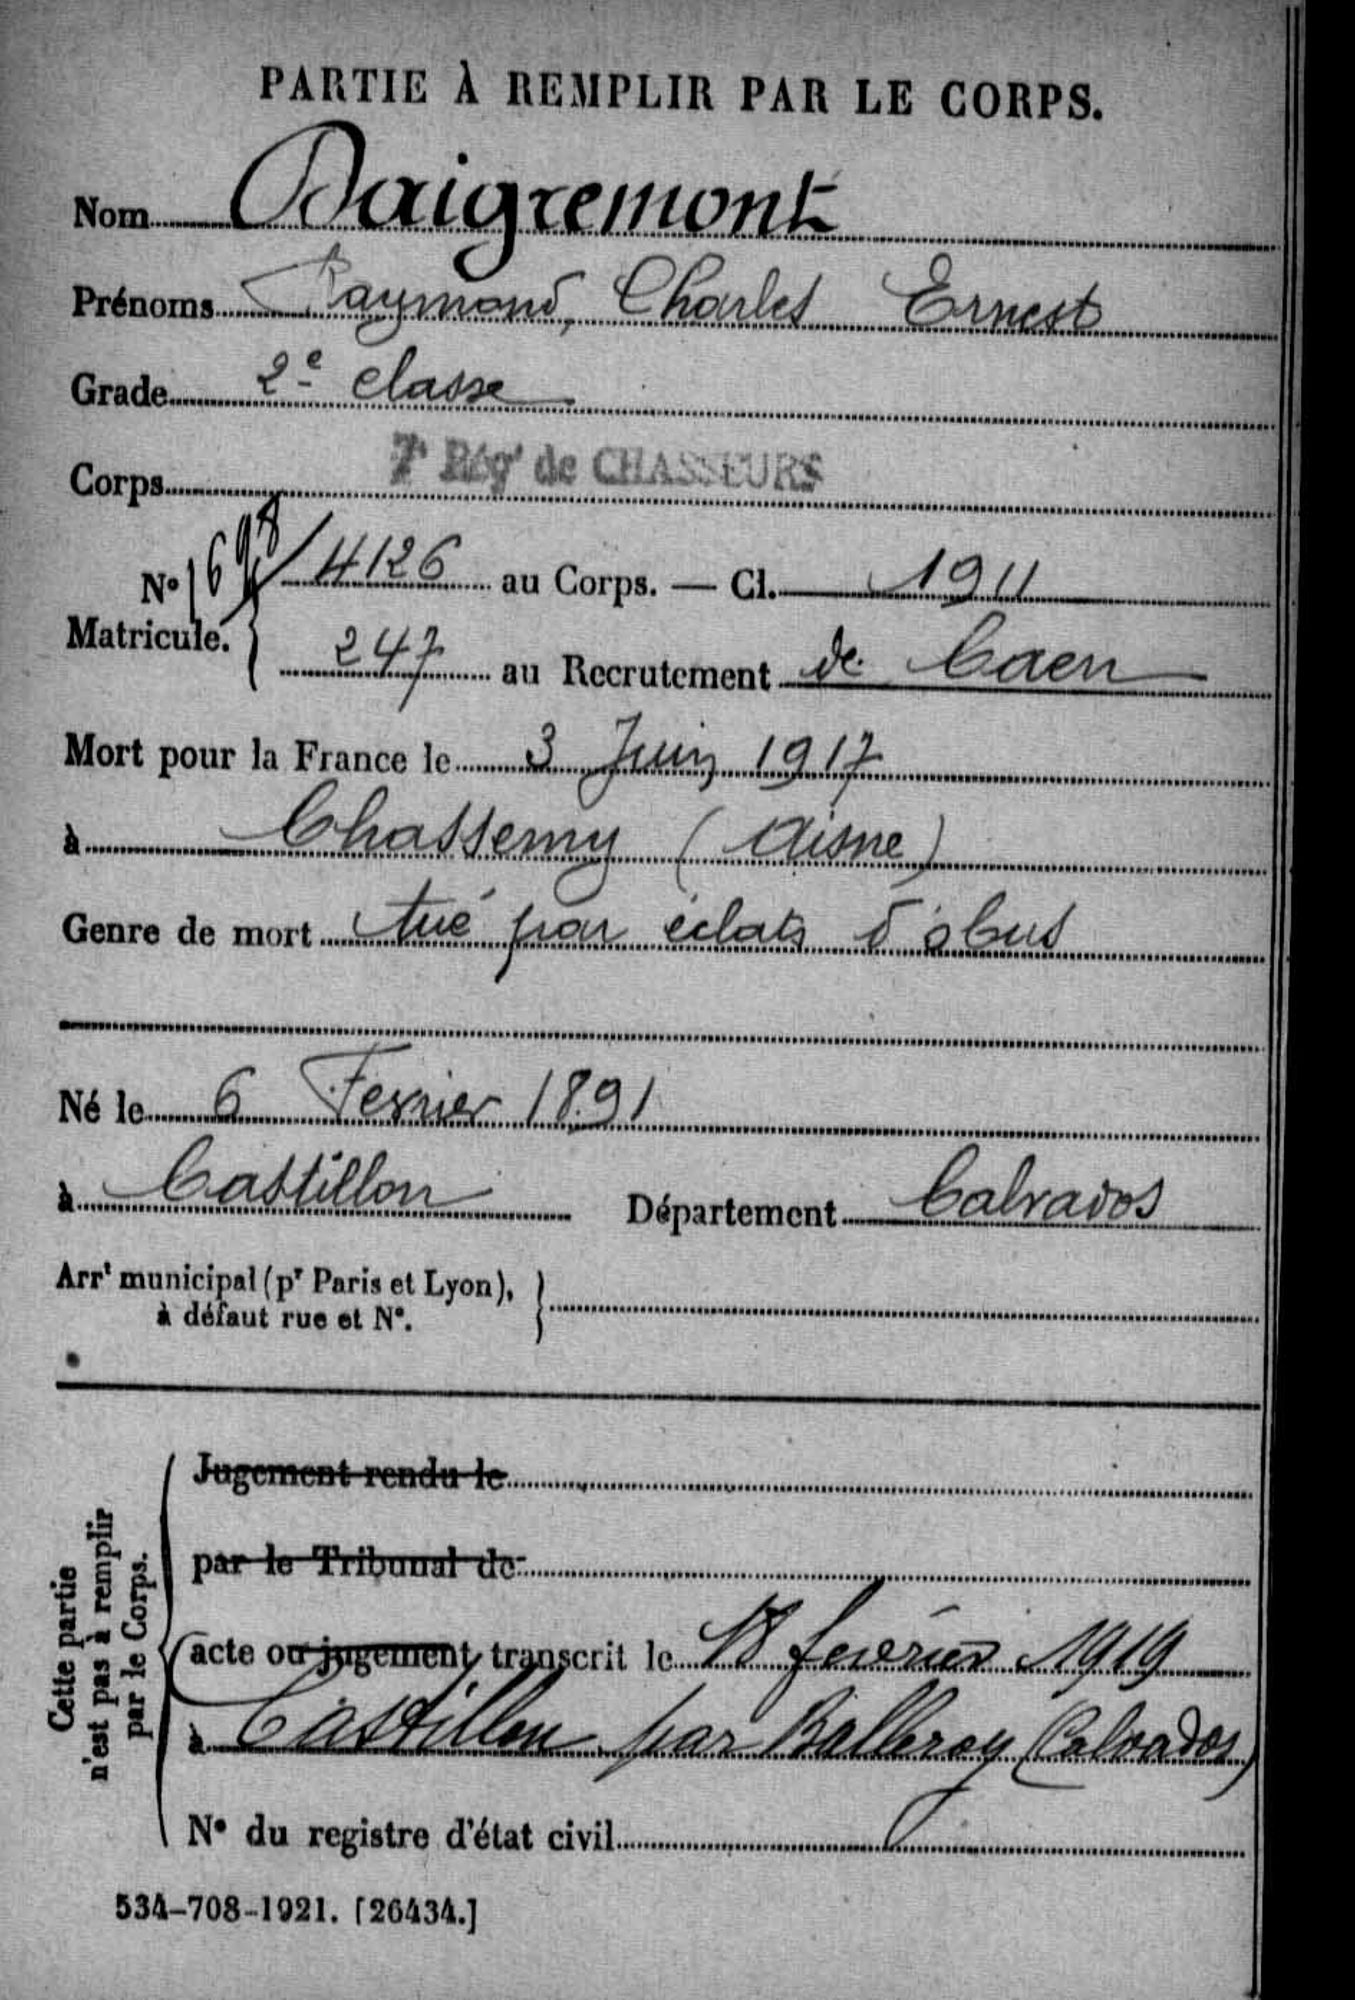 PARTIE À REMPLIR PAR LE CORPS.
Nom Daigremont
Prénoms Raymond, Charles Ernest
Grade 2e classe
Corps 7e Régt de CHASSEURS
No 1698/4126 au Corps. — Cl. 1911
Matricule. 247 au Recrutement de Caen
Mort pour la France le 3 Juin 1917
à Chassemy (Aisne)
Genre de mort tué par éclats d'obus
Né le 6 Fevrier 1891
à Castillon Département Calvados
Arrt municipal (pr Paris et Lyon),
à défaut rue et No.
Cette partie
n'est pas à remplir
par le Corps.
Jugement rendu le
par le Tribunal de
acte ou jugement transcrit le 18 février 1919
à Castillon par Balleroy (Calvados)
No du registre d'état civil
534-708-1921. [26434.]